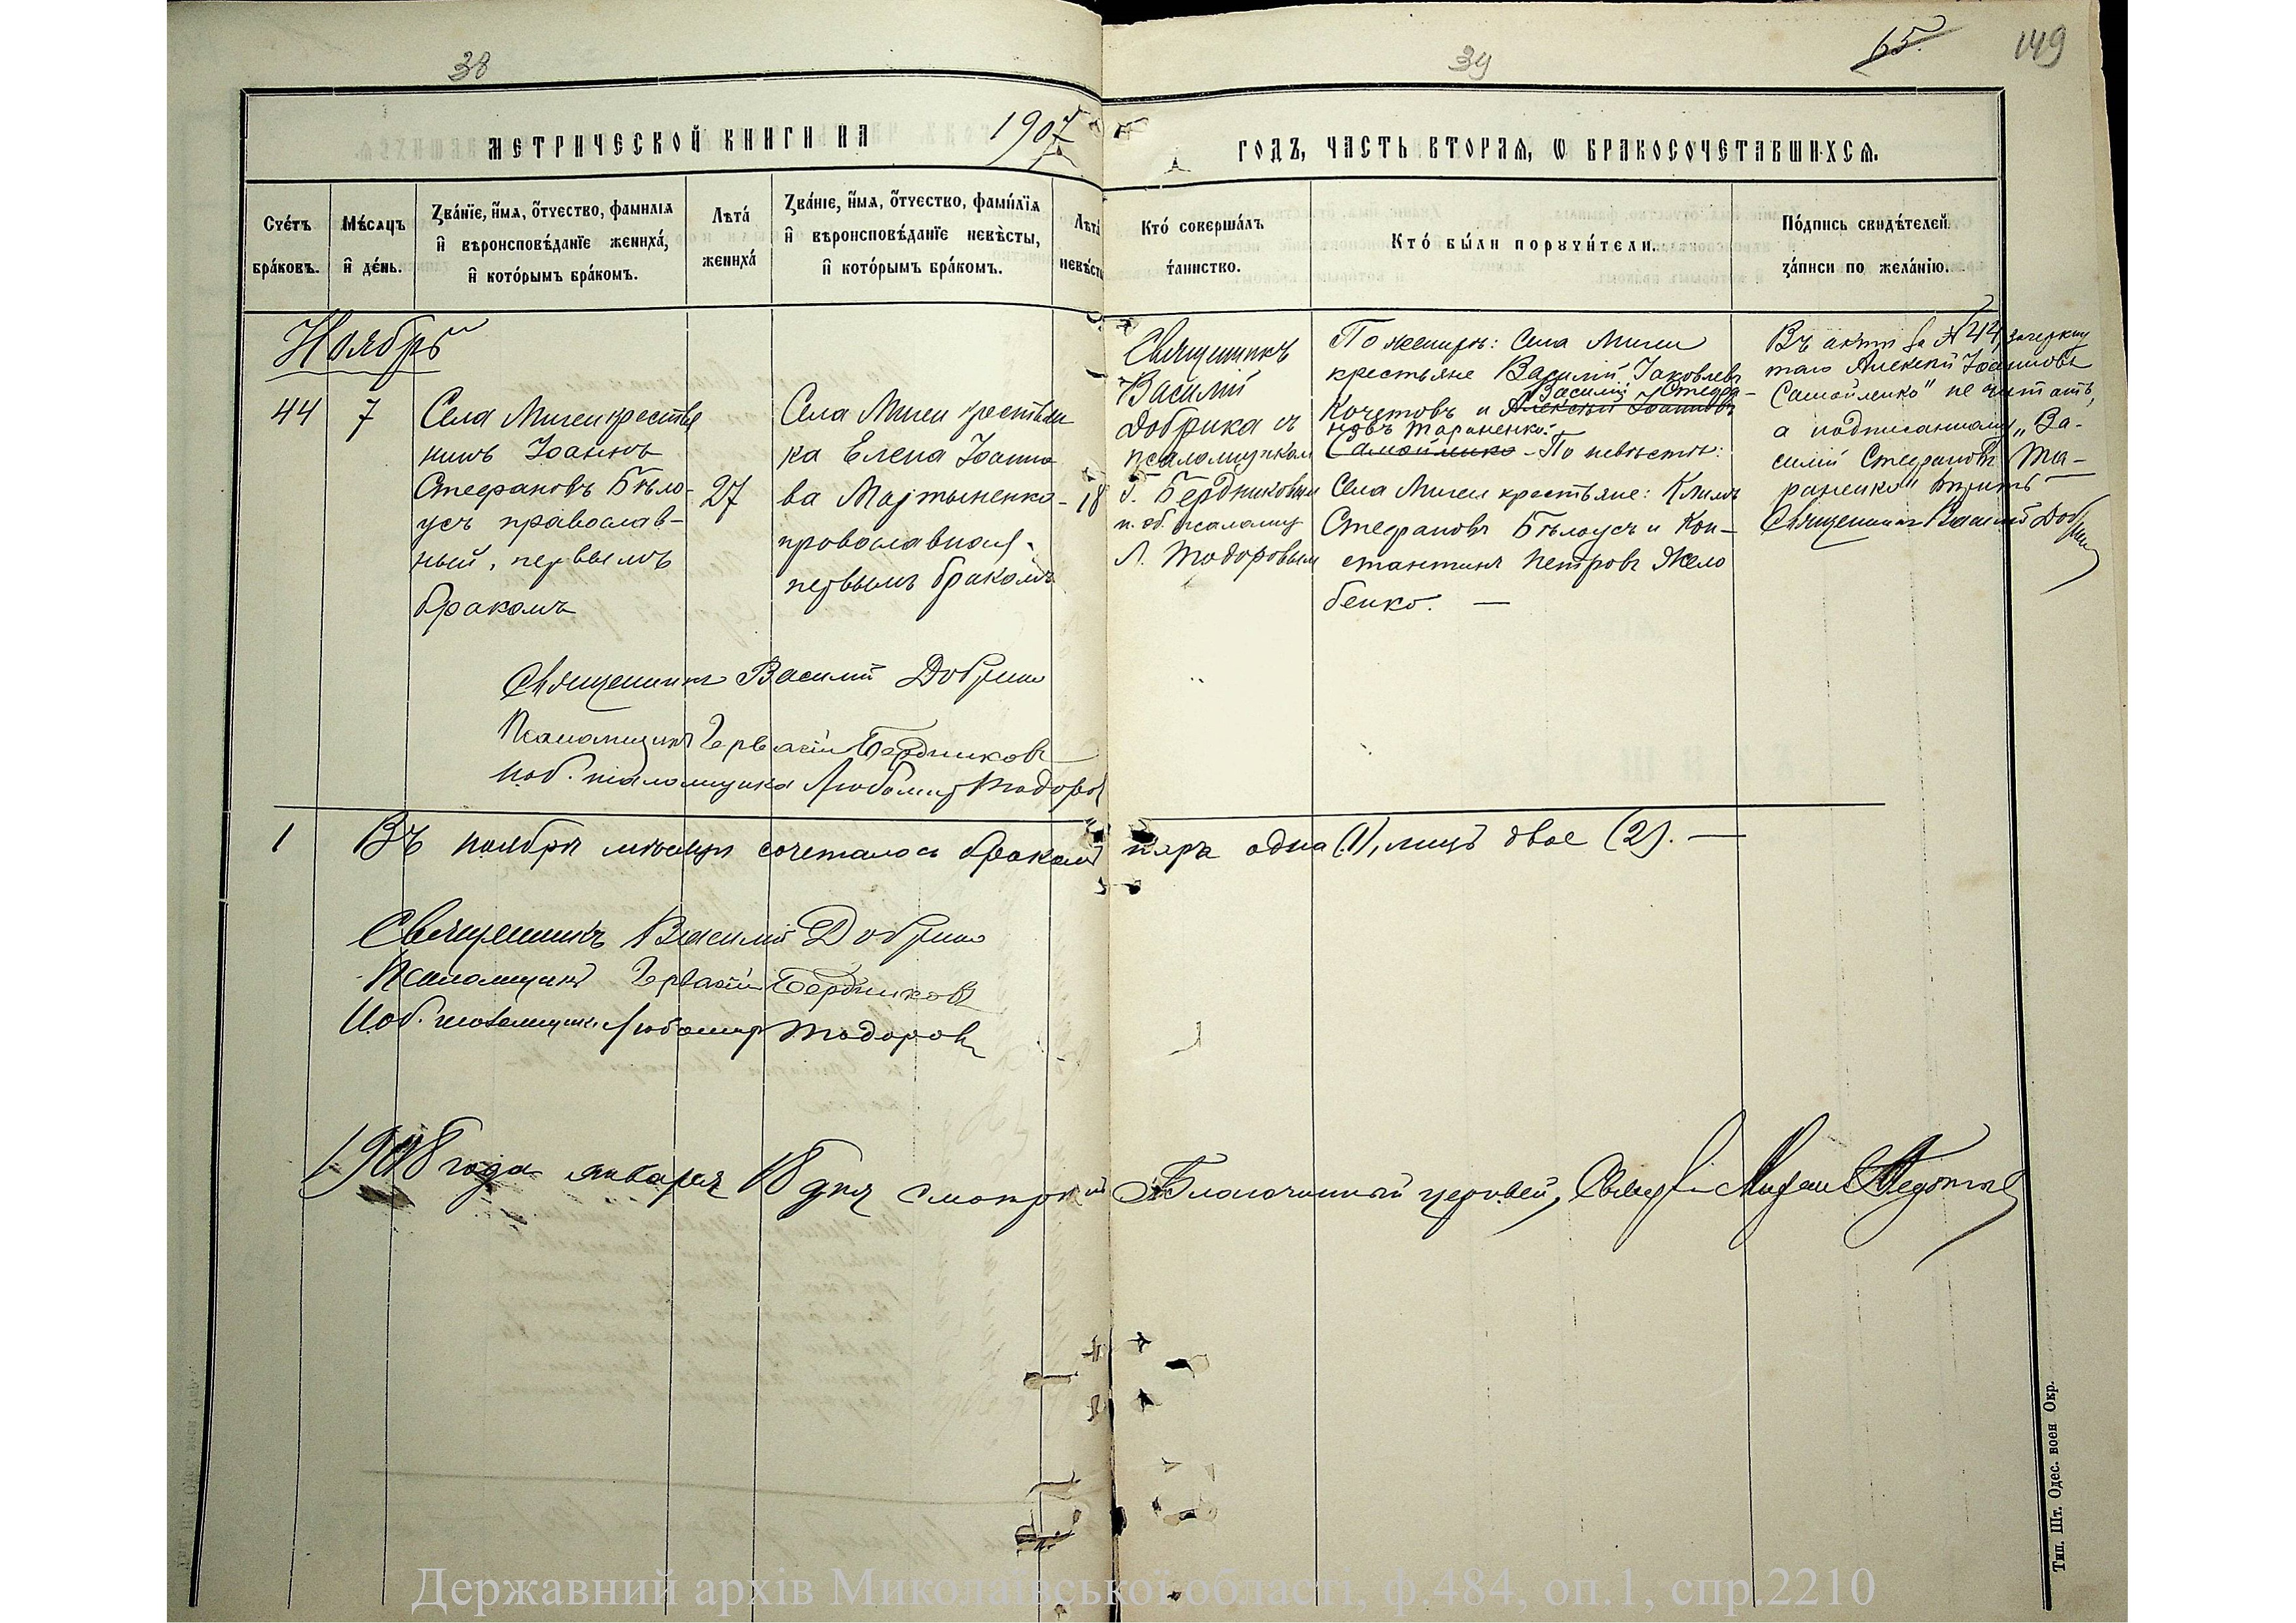 38
39
65.
149
МЕТРИЧЕСКОЙ КНИГИ НА 1907 ГОДЪ, ЧАСТЬ ВТОРАЯ, Ѡ БРАКОСОЧЕТАВШИХСЯ.
Счетъ браковъ.
Мѣсяцъ и день.
Званїе, имя, отчество, фамилїя
и вѣроисповѣданїе жениха,
и которымъ бракомъ.
Лѣта
жениха
Званїе, имя, отчество, фамилїя
и вѣроисповѣданїе невѣсты,
и которымъ бракомъ.
Лѣта
невѣсты
Кто совершалъ
таинство.
Кто были поручители.
Подпись свидѣтелей
записи по желанію.
Ноябрь
44
7
Села Мигеи крестья
нинъ Іоаннъ
Стефановъ Бѣло-
усъ православ-
ный, первымъ
бракомъ
27
Села Мигеи крестьян
ка Елена Іоанно
ва Мартыненко-
православная.
первымъ бракомъ
18
Священникъ
Василій
Добрика съ
псаломщиком
Г. Бердниковым
и. об. псаломщ
Л. Тодоровым
По женихѣ: Села Мигеи
крестьяне Василій Іаковлевъ
Василій Стефа-
Кочетовъ и Алексѣй Іоанновъ
новъ Тараненко.
Самойленко - По невѣстѣ:
Села Мигеи крестьяне: Климъ
Стефановъ Бѣлоусъ и Кон-
стантинъ Петровъ Жело
бенко. —
Въ актѣ за № 44 зачеркну
таго Алексѣй Іоанновъ
Самойленко" не читать,
а надписанному „Ва-
силій Стефановъ Та-
раненко" вѣрить —
Священникъ Василій Добрика
Священникъ Василій Добрика
Псаломщикъ Гервасій Бердниковъ
И об. псаломщика Любомиръ Тодоровъ
1 Въ ноябрѣ мѣсяцѣ сочеталось бракомъ пара одна (1), лицъ двое (2). —
Священникъ Василій Добрика
Псаломщикъ Гервасій Бердниковъ
И об. псаломщика Любомиръ Тодоровъ
1908 года января 18 дня смотрѣлъ Благочинный церквей, Священ
Тип. Шт. Одес. воен Окр.
Державний архів Миколаївської області, ф.484, оп.1, спр.2210